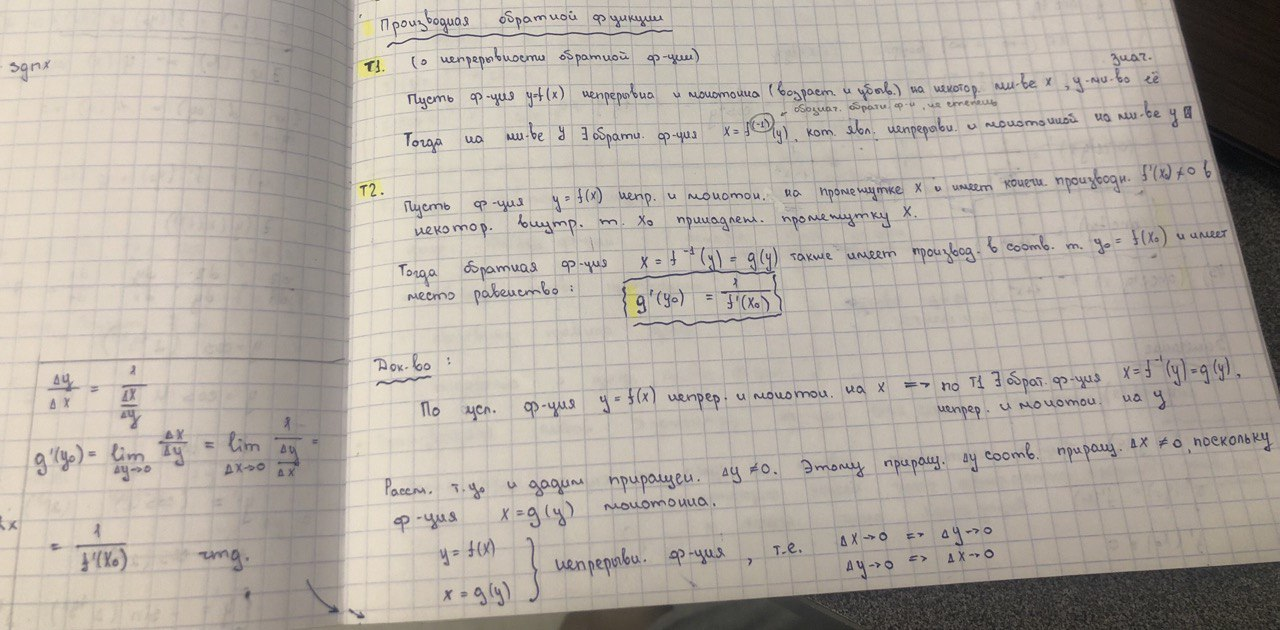 sgnx
Δy/Δx = 1/(Δx/Δy)
g'(y₀) = lim Δy→0 Δx/Δy = lim Δx→0 1/(Δy/Δx) =
= 1/f'(x₀) чтд.
Производная обратной функции
Т1. (о непрерывности обратной ф-ции)
Пусть ф-ция y=f(x) непрерывна и монотонна (возраст. и убыв.) на некотор. мн-ве X, y-мн-во её знач.
обознач. обратн. ф-и, не степень
Тогда на мн-ве y ∃ обратн. ф-ция x = f⁽⁻¹⁾(y), кот. явл. непрерывн. и монотонной на мн-ве y
Т2.
Пусть ф-ция y = f(x) непр. и монотон. на промежутке X и имеет конечн. производн. f'(x₀) ≠ 0 в
некотор. внутр. т. x₀ принадлеж. промежутку X.
Тогда обратная ф-ция x = f⁻¹(y) = g(y) также имеет производ. в соотв. т. y₀ = f(x₀) и имеет
место равенство: g'(y₀) = 1/f'(x₀)
Док-во:
По усл. ф-ция y = f(x) непрер. и монотон. на X => по Т1 ∃ обрат. ф-ция x = f⁻¹(y) = g(y),
непрер. и монотон. на y
Рассм. т. y₀ и дадим приращен. Δy ≠ 0. Этому приращ. Δy соотв. приращ. Δx ≠ 0, поскольку
ф-ция x = g(y) монотонна.
y = f(x)
x = g(y)
} непрерывн. ф-ция, т.е. Δx→0 => Δy→0
Δy→0 => Δx→0